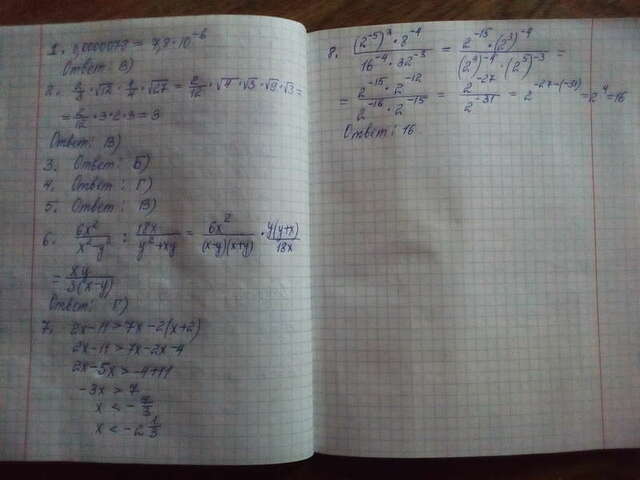 1. 0,0000078 = 7,8 · 10^-6
Ответ: В)
2. 2/3 · √12 · 1/4 · √27 = 2/12 · √4 · √3 · √9 · √3 =
= 2/12 · 3 · 2 · 3 = 3
Ответ: В)
3. Ответ: Б)
4. Ответ: Г)
5. Ответ: В)
6. 6x²/(x²-y²) : 18x/(y²+xy) = 6x²/((x-y)(x+y)) · y(y+x)/18x
= xy/3(x-y)
Ответ: Г)
7. 2x-11 > 7x-2(x+2)
2x-11 > 7x-2x-4
2x-5x > -4+11
-3x > 7
x < -7/3
x < -2 1/3
8. ((2^-5)^3 · 8^-4)/(16^-4 · 32^-3) = (2^-15 · (2^3)^-4)/((2^4)^-4 · (2^5)^-3) =
= (2^-15 · 2^-12)/(2^-16 · 2^-15) = 2^-27/2^-31 = 2^-27-(-31) = 2^4 = 16
Ответ: 16.